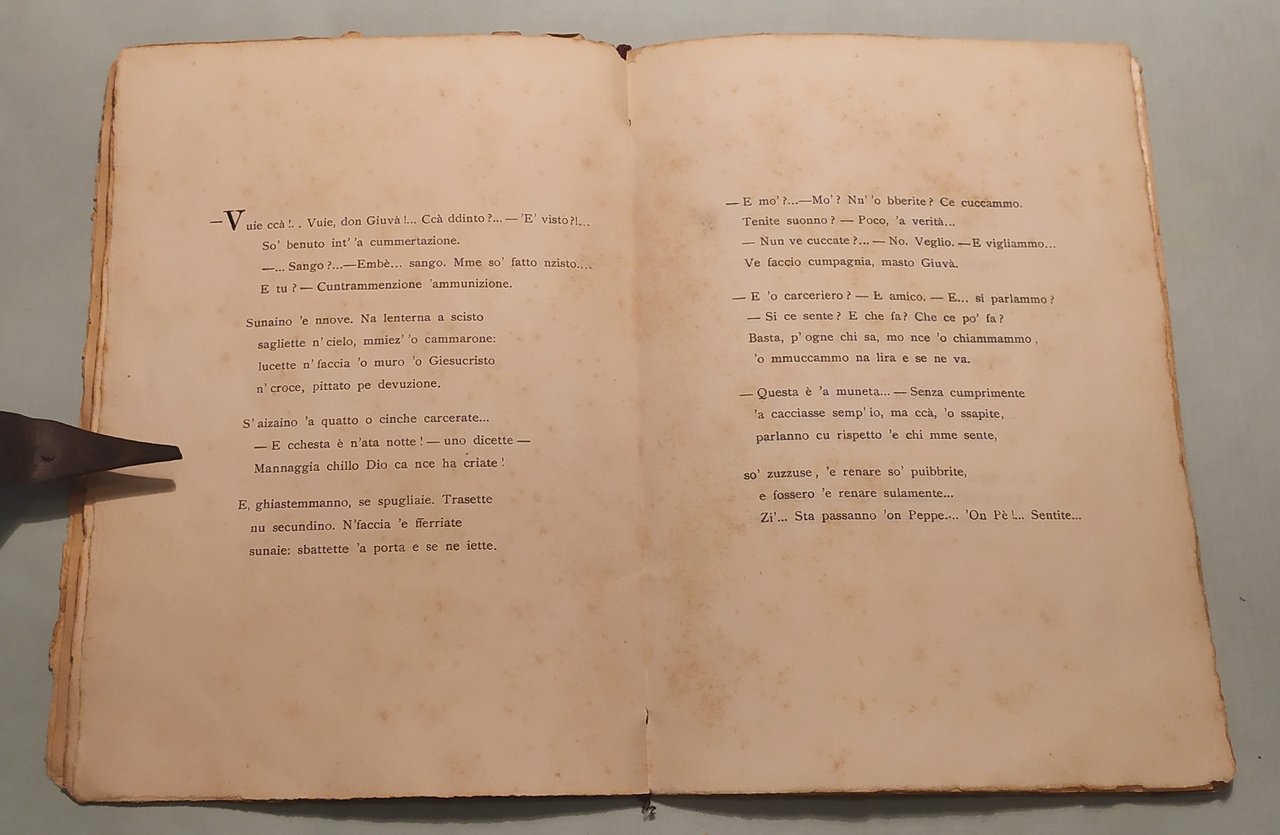 —Vuie ccà!.. Vuie, don Giuvà!... Ccà ddinto?...—'E' visto?!...
So' benuto int' 'a cummertazione.
—... Sango?...—Embè... sango. Mme so' fatto nzisto....
E tu?— Cuntrammenzione 'ammunizione.
Sunaino 'e nnove. Na lenterna a scisto
sagliette n' cielo, mmiez' 'o cammarone:
lucette n' faccia 'o muro 'o Giesucristo
n' croce, pittato pe devuzione.
S' aizaino 'a quatto o cinche carcerate...
— E cchesta è n'ata notte!— uno dicette—
Mannaggia chillo Dio ca nce ha criate!
E, ghiastemmanno, se spugliaie. Trasette
nu secundino. N'faccia 'e fferriate
sunaie: sbattette 'a porta e se ne iette.
— E mo'?...—Mo'? Nn' 'o bberite? Ce cuccammo.
Tenite suonno?— Poco, 'a verità...
— Nun ve cuccate?...— No. Veglio.—E vigliammo...
Ve faccio cumpagnia, masto Giuvà.
— E 'o carceriero?— È amico.— E... si parlammo?
— Si ce sente? E che fa? Che ce po' fa?
Basta, p' ogne chi sa, mo nce 'o chiammammo,
'o mmuccammo na lira e se ne va.
— Questa è 'a muneta...— Senza cumprimente
'a cacciasse semp' io, ma ccà, 'o ssapite,
parlanno cu rispetto 'e chi mme sente,
so' zuzzuse, 'e renare so' puibbrite,
e fossero 'e renare sulamente...
Zi'... Sta passanno 'on Peppe.... 'On Pè!... Sentite...